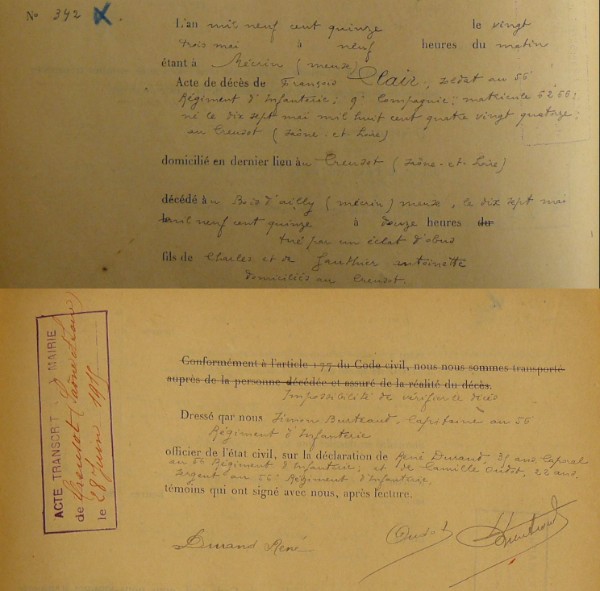 No 342 X
L'an mil neuf cent quinze le vingt
trois mai à neuf heures du matin
étant à Mécrin (meuse)
Acte de décès de François Clair, soldat au 56
Régiment d'Infanterie; 9e Compagnie; matricule 5256;
né le dix sept mai mil huit cent quatre vingt quatorze;
au Creusot (Saône-et-Loire)
domicilié en dernier lieu au Creusot (Saône-et-Loire)
décédé au Bois d'ailly (mécrin) meuse, le dix sept mai
mil neuf cent quinze à douze heures du
tué par un éclat d'obus
fils de Charles et de Gauthier antoinette
domiciliés au Creusot.
Conformément à l'article 177 du Code civil, nous nous sommes transporté
auprès de la personne décédée et assuré de la réalité du décès.
Impossibilité de vérifier le décès
Dressé par nous Simon Burteaud, Capitaine au 56
Régiment d'Infanterie
officier de l'état civil, sur la déclaration de René Durand, 31 ans, Caporal
au 56 Régiment d'Infanterie; et de Camille Oudot, 22 ans,
Sergent au 56e Régiment d'Infanterie,
témoins qui ont signé avec nous, après lecture.
Durand René
Oudot
ACTE TRANSCRIT MAIRIE
de Creusot (Saône et Loire)
le 28 Juin 1915